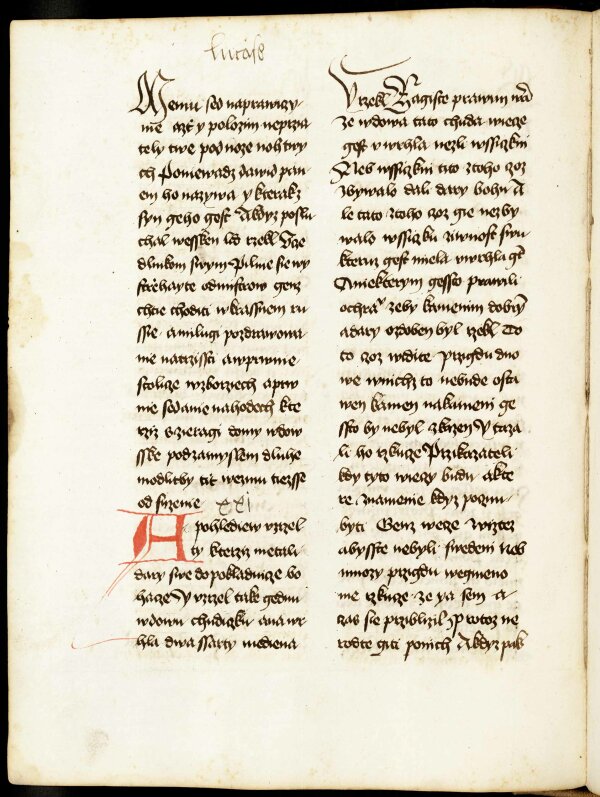 lucass
Memu sed naprawiczy
mie azt y polozim neprza
tely twe pod noze noh twy
ch Poniewadz dawid pan
em ho nazywa y kterakz
syn geho gest A kdyz poslu
chal wessken lid rzekl Vcze
dlnikom swym Pilnie sie wy
strzehayte od mistrow genz
chtie choditi w krassniem ru
ssie a milugi pozdrawowa
nie na trzissci a w prwnie
stolicze w zborziech a prw
nie sedanie na hodech kte
rziz szieragi domy wdow
sske pod zamyslem dluhe
modlitby tit wezmu tiezsse
odsuzenie xxi
A pohlediew vzrzel
ty kterziz metali
dary swe do pokladnicze bo
hacze Y vzrzel take gednu
wdowu chudiczku ana wr
hla dwa ssarty miediena
Y rzekl Zagiste prawim wam
ze wdowa tato chuda wiecze
gest vwrhla nezli wssiczkni
Neb wssiczkni tito z toho czoz
zbywalo dali dary bohu A
le tato z toho czoz gie nezby
walo wssiczku ziwnost swu
kteruz gest miela vwrhla gt
A niekterym gessto prawili
o chra zeby kamenim dobrym
a dary ozdoben byl rzekl To
to czoz widite przigdu dno
we w nichz to nebude osta
wen kamen na kameni ge
ssto by nebyl zkazen Y taza
li ho rzkucze Przikazateli
kdy tyto wieczy budu a kte
re znamenie kdyz poczni
byti Genz wecze Wizte z
abysste nebyli swedeni neb
mnozy przigdu we gmeno
me rzkucze ze ya sem a
czas sie prziblizil Protoz ne
rodte giti po nich A kdyz pak